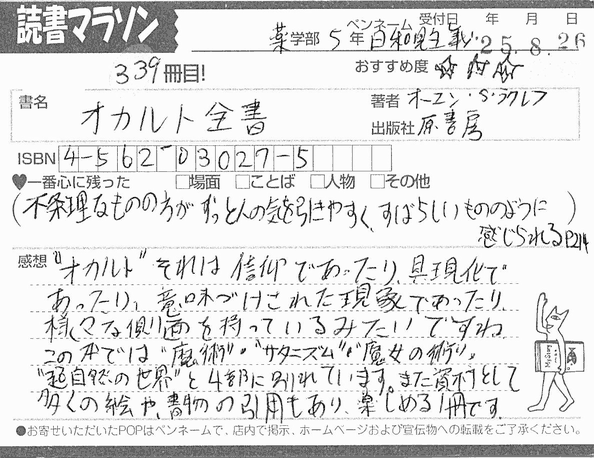 読書マラソン
ペンネーム 受付日 年 月 日
薬学部 5年 日和見主義 25.8.26
339冊目!
おすすめ度 ☆☆☆
書名 オカルト全書
著者 オーエン・S・ラクレフ
出版社 原書房
ISBN 4-562-03027-5
♥一番心に残った □場面 □ことば □人物 □その他
(不条理なものの方がずっと人の気を引きやすく、すばらしいもののように
感じられるP214)
感想 "オカルト"それは信仰であったり、具現化で
あったり、意味づけされた現象であったり、
様々な側面を持っているみたいですね
この本では"魔術"・"サタニズム"・"魔女の術"・
"超自然の世界"と4部に別れています。また資料として
多くの絵や、書物の引用もあり、楽しめる1冊です。
●お寄せいただいたPOPはペンネームで、店内で掲示、ホームページおよび宣伝物への転載をご了承ください。